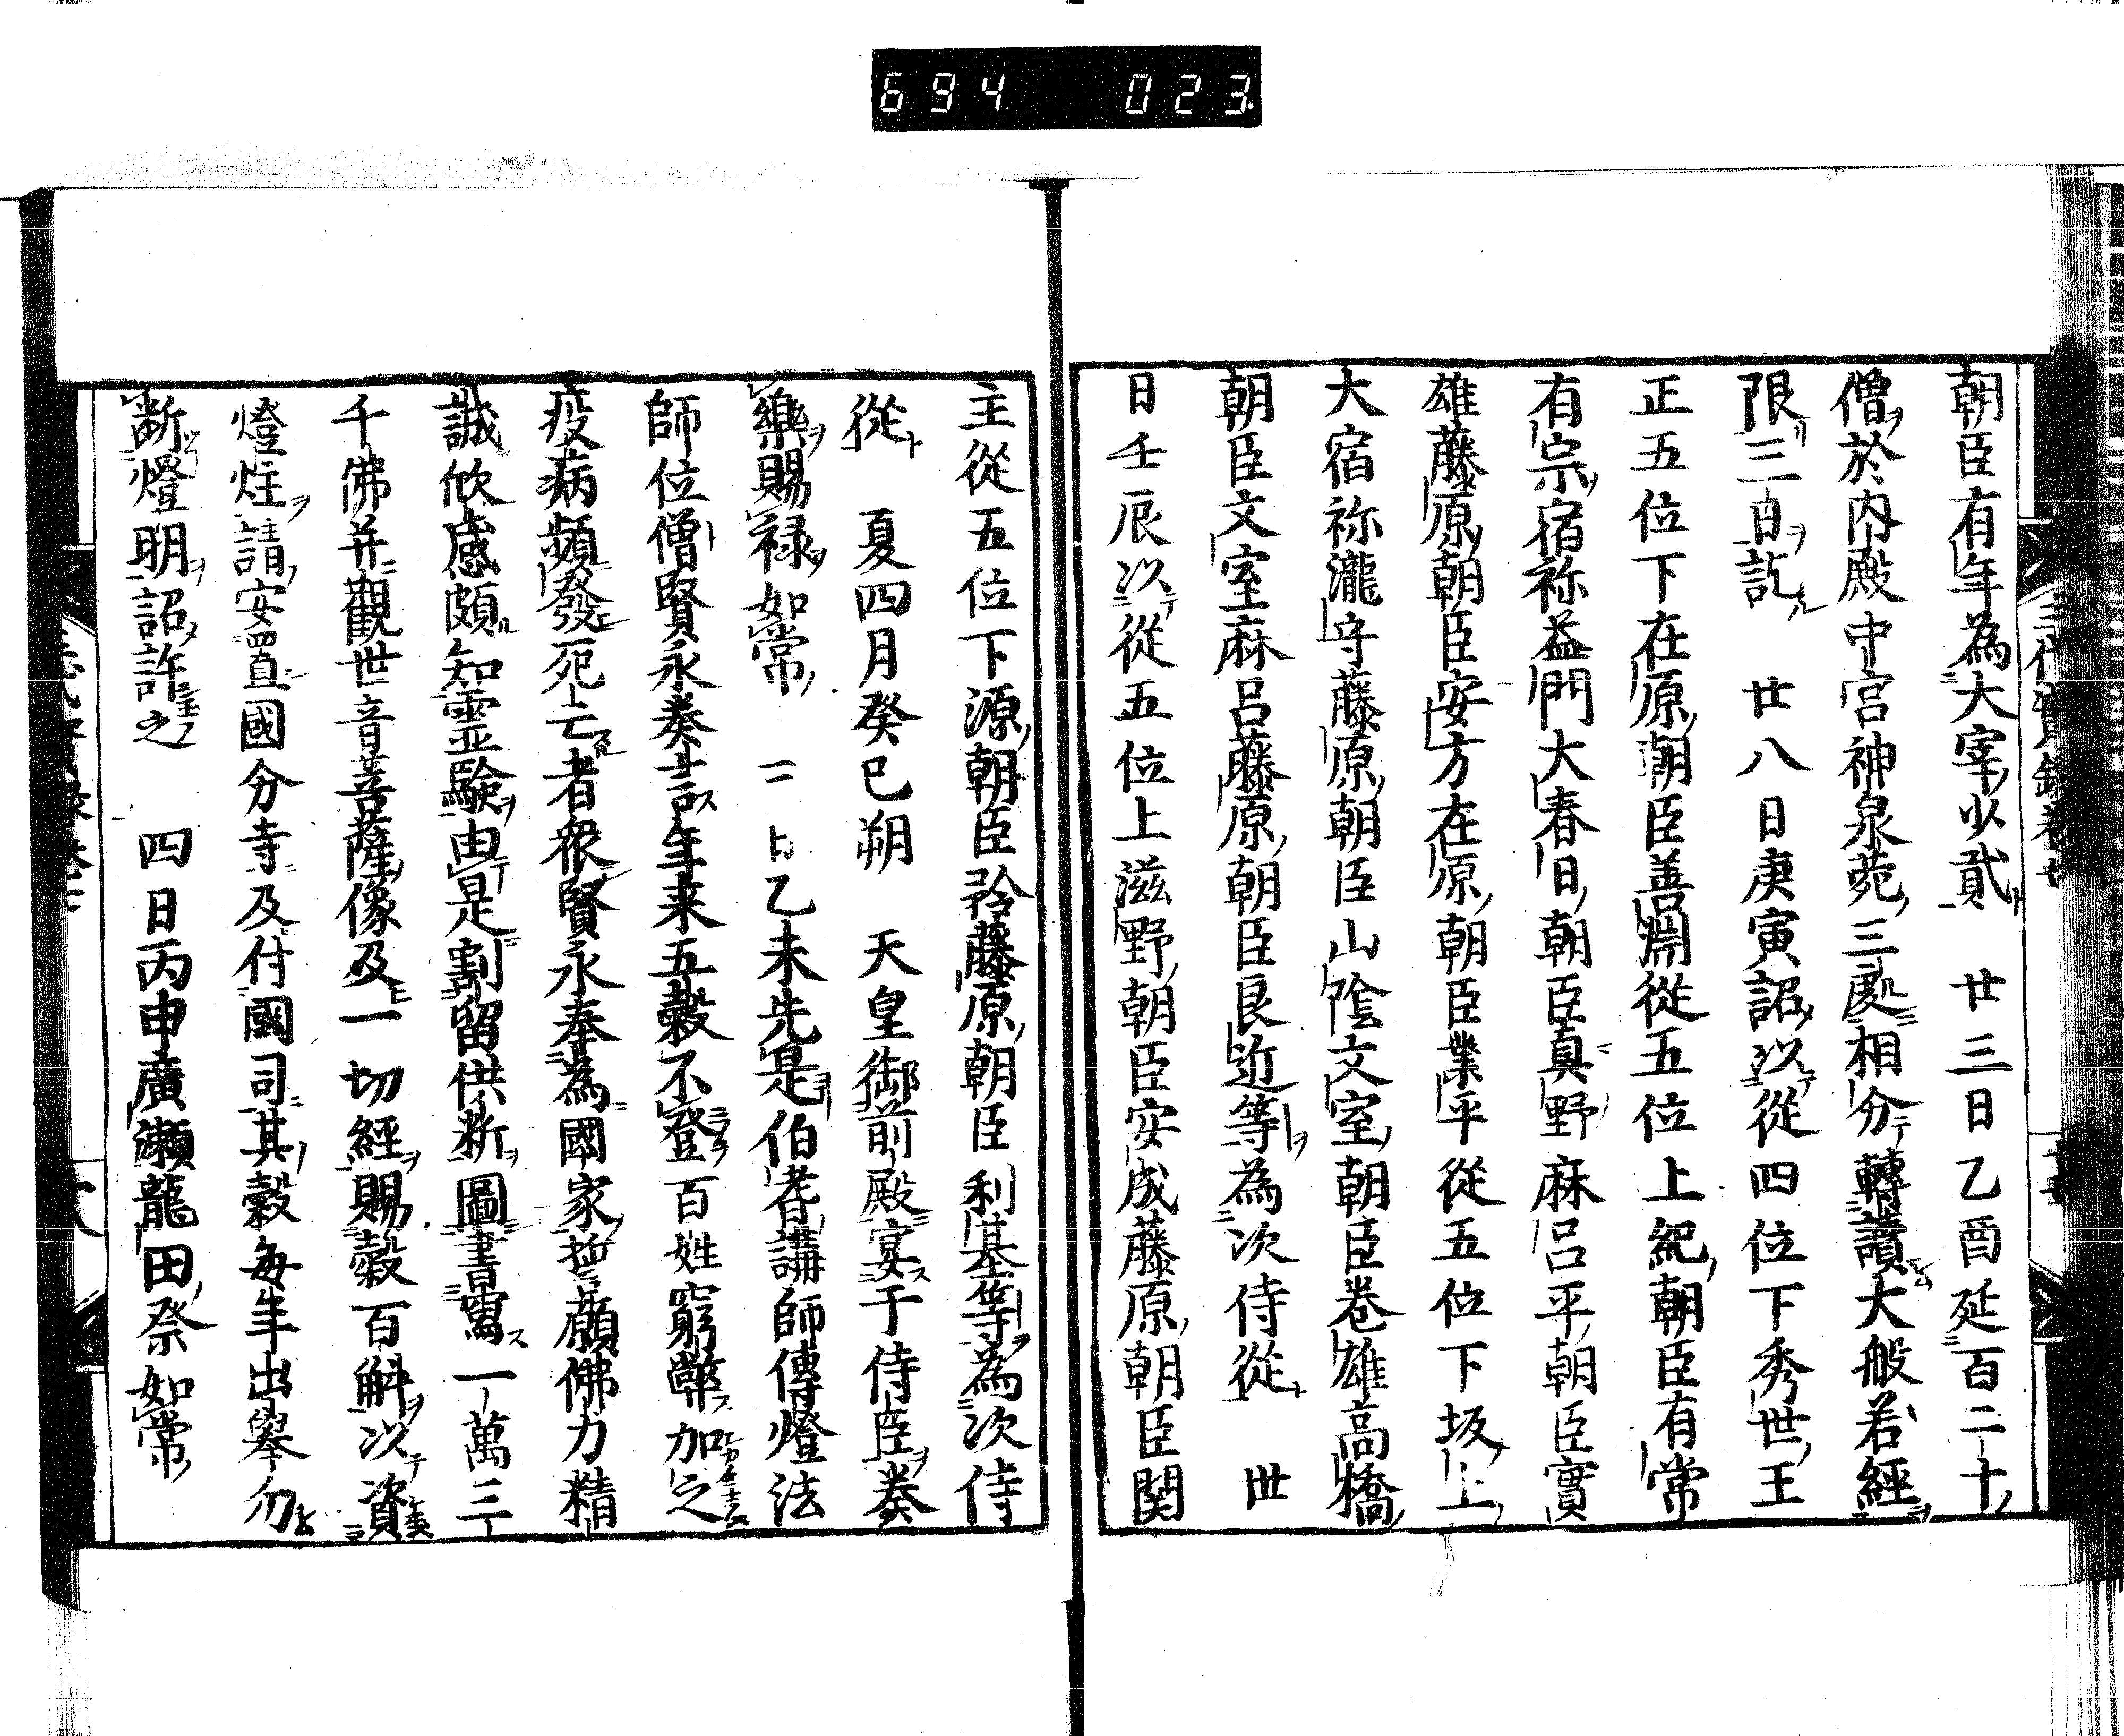 694 023
朝臣有年為大宰少貳 廿三日乙酉延百二十
僧於内殿中宮神泉苑三處相分轉讀大般若經
限三日訖 廿八日庚寅詔以從四位下秀世王
正五位下在原朝臣善淵從五位上紀朝臣有常
有宗宿祢益門大春日朝臣真野麻呂平朝臣實
雄藤原朝臣安方在原朝臣業平從五位下坂上
大宿祢瀧守藤原朝臣山陰文室朝臣卷雄高橋
朝臣文室麻呂藤原朝臣良近等為次侍從 丗
日壬辰以從五位上滋野朝臣安成藤原朝臣関
主從五位下源朝臣矜藤原朝臣利基等為次侍
從 夏四月癸巳朔 天皇御前殿宴于侍臣奏
樂賜禄如常 三日乙未先是伯耆講師傳燈法
師位僧賢永奏言年来五穀不登百姓窮弊加之
疫病頻發死亡者衆賢永奉為國家誓願佛力精
誠攸感頗知靈驗由是割留供料圖書寫一萬三
千佛并觀世音菩薩像及一切經賜穀百斛以資
燈炷請安置國分寺及付國司其穀每年出擧勿
断燈明詔許之 四日丙申廣瀬龍田祭如常